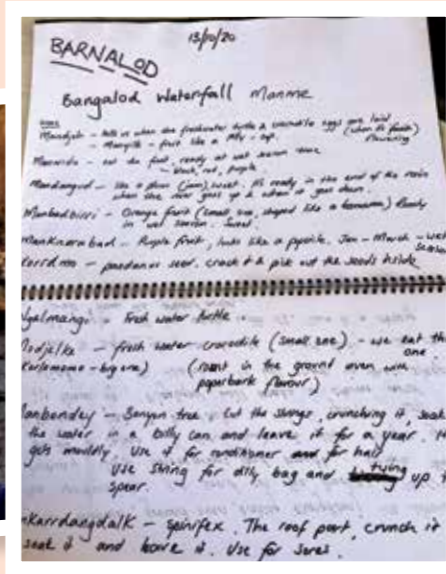 13/10/20
BARNALOD
Bangalod Waterfall Manme
tells us when the freshwater turtle & crocodile eggs are laid
fruit like a (when it's flowering
eat the fruit, ready at wet season time
black, red, purple
like a plum (jam), sweet. It's ready in the end of the rain
when the river goes up & when it goes down.
Manbadbirri - Orange fruit (small one, shaped like a banana) Ready
in wet season. Sweet.
Purple fruit, looks like a Jan - March - wet
season
pandanus seed, crack it & pick out the seeds inside
galmangi - Fresh water turtle.
fresh water crocodile (small one) - we eat th
one
- big one) (roast in the ground oven with
paperbark flavour)
anbondey - Banyan tree. Cut the strings, crunching it, soak
the water in a billy can and leave it for a year. It
gets mouldy. Use it for conditioner and for hair
Use string for dilly bag and tying up
spear.
karrdangdalk - spinifex. The root part, crunch it
soak it and leave it. Use for sores.